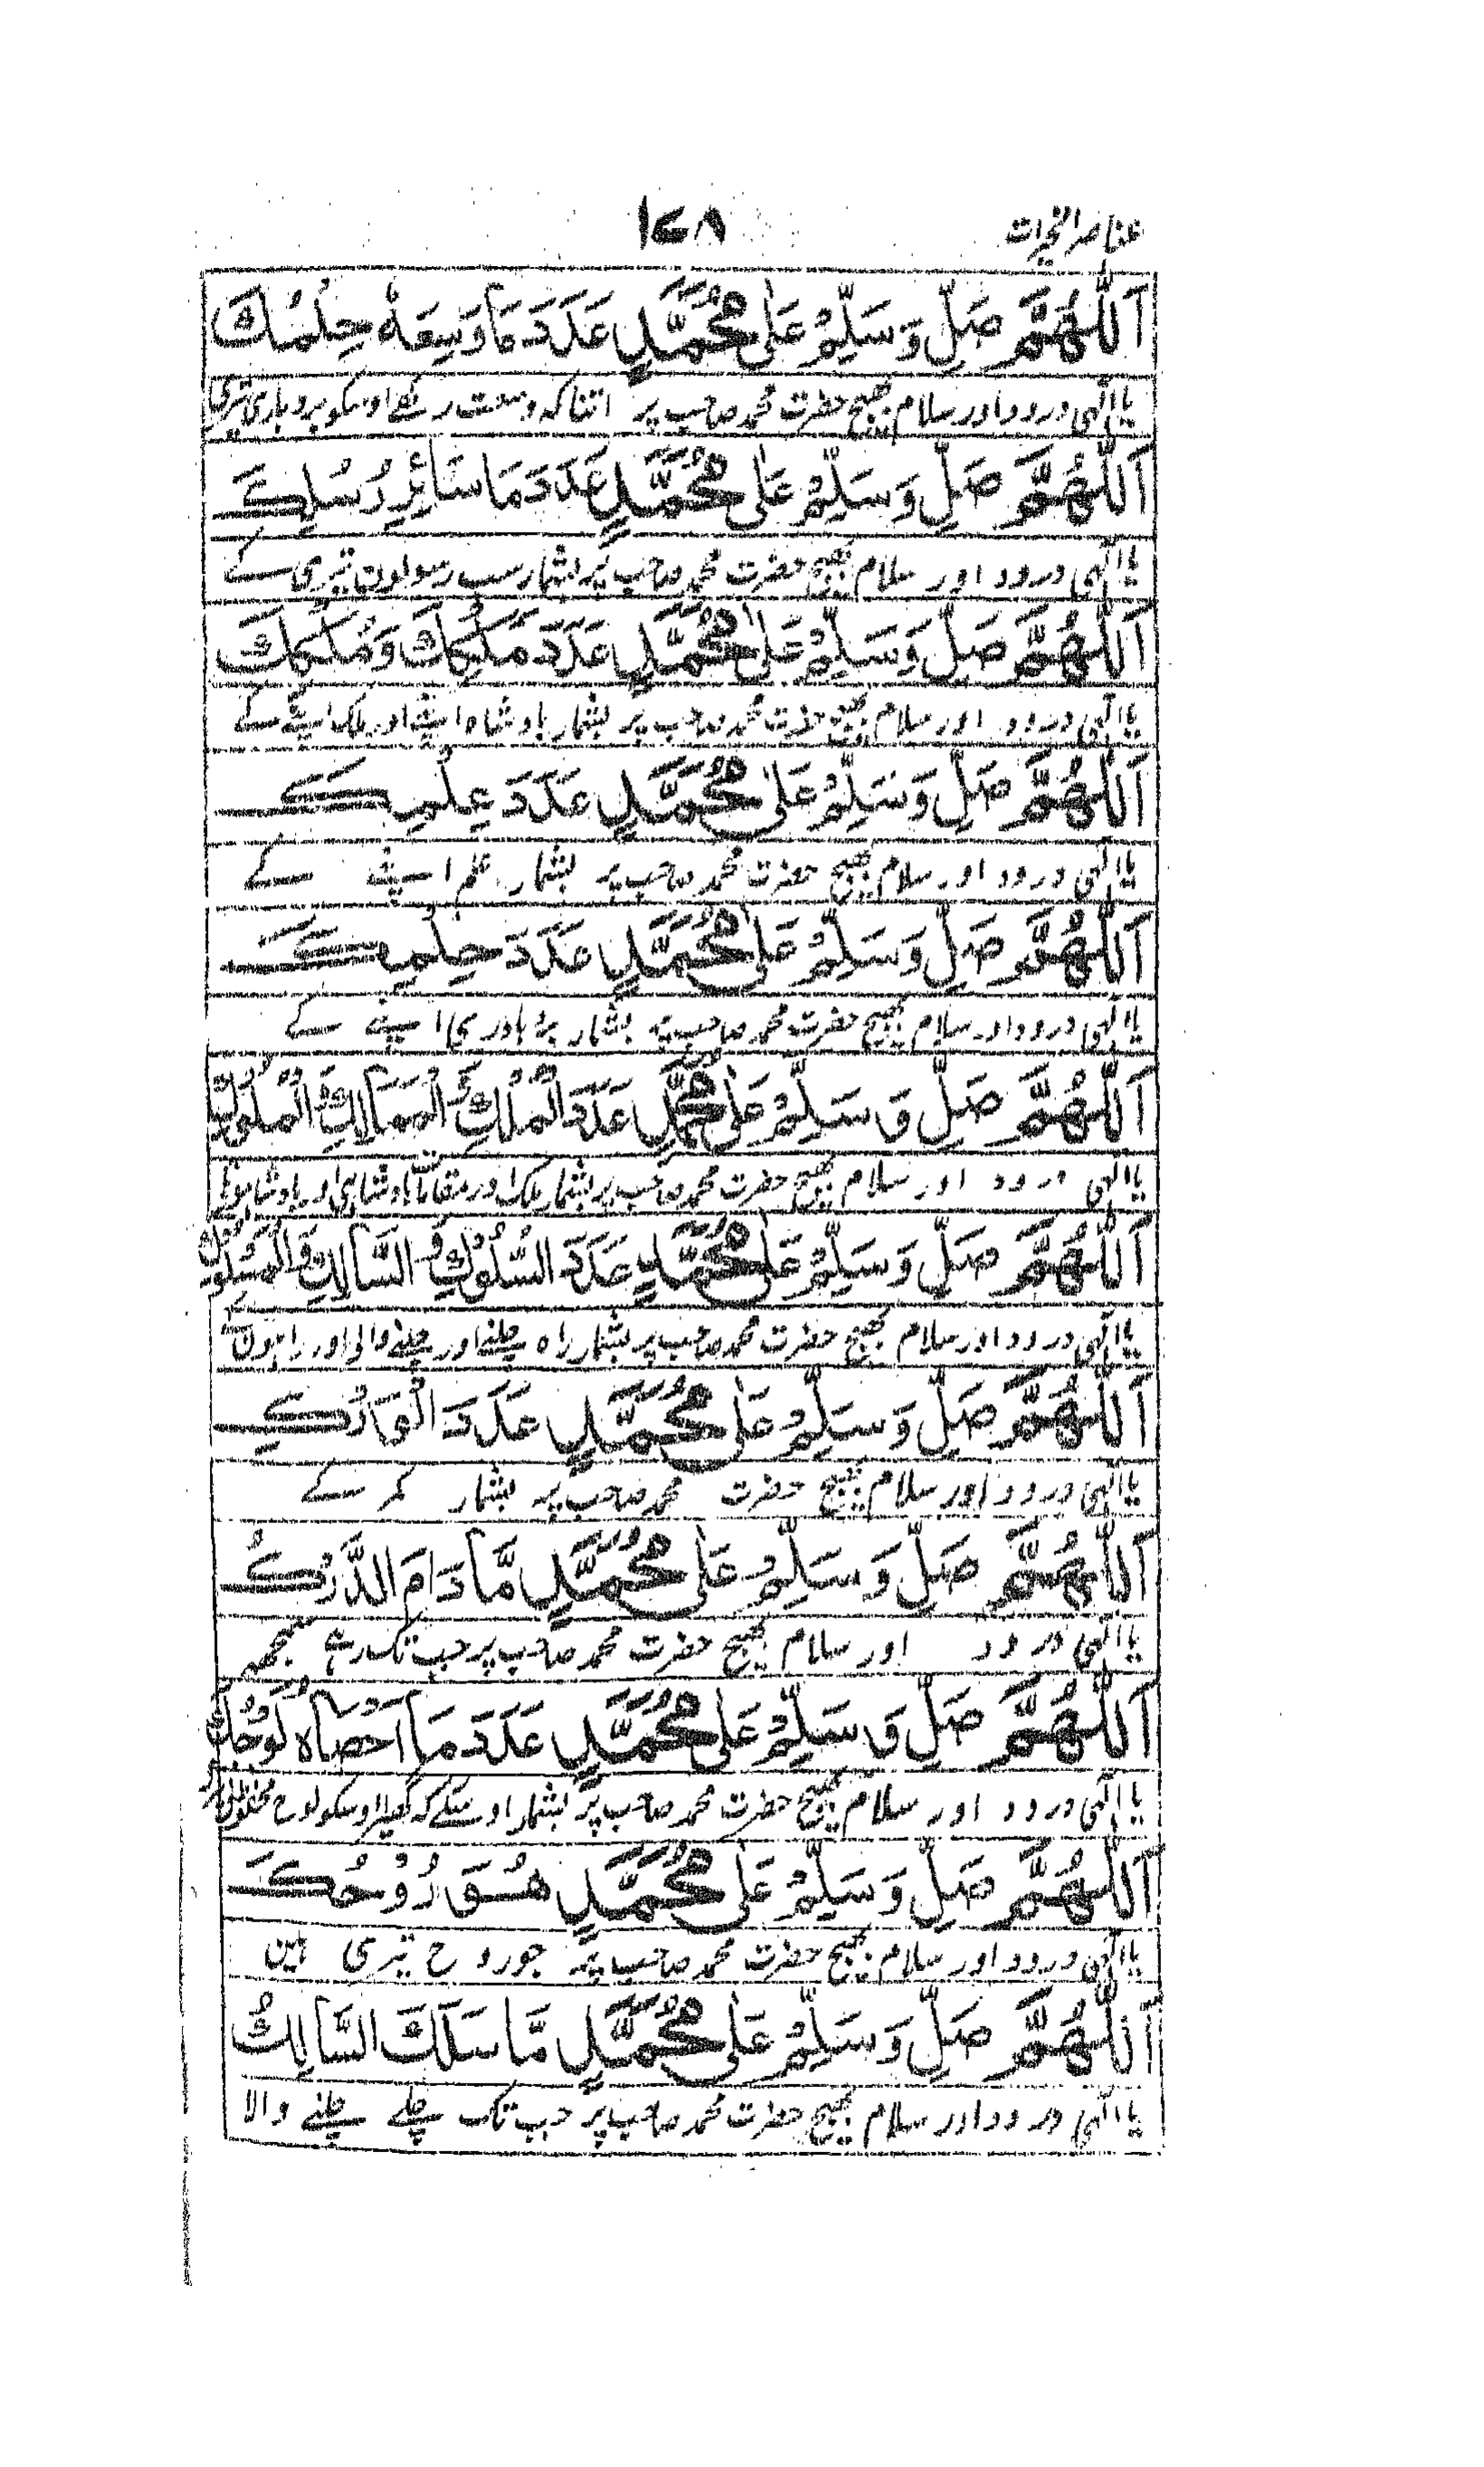 عناصر الخیرات
۱۷۸
اَللّٰهُمَّ صَلِّ وَسَلِّمْ عَلٰى مُحَمَّدٍ عَدَدَ مَا وَسِعَهٗ حِلْمُكَ
یا الٰہی درود اور سلام بھیج حضرت محمد صاحب پر اتنا کہ وسعت رکھے اوسکو بردباری تیری
اَللّٰهُمَّ صَلِّ وَسَلِّمْ عَلٰى مُحَمَّدٍ عَدَدَ مَا سَائِرِ رُسُلِكَ
یا الٰہی درود اور سلام بھیج حضرت محمد صاحب پر بشمار سب رسولون تیری کے
اَللّٰهُمَّ صَلِّ وَسَلِّمْ عَلٰى مُحَمَّدٍ عَدَدَ مَلِكِكَ وَمُلْكِكَ
یا الٰہی درود اور سلام بھیج حضرت محمد صاحب پر بشمار بادشاہ اپنے اور ملک اپنے کے
اَللّٰهُمَّ صَلِّ وَسَلِّمْ عَلٰى مُحَمَّدٍ عَدَدَ عِلْمِكَ
یا الٰہی درود اور سلام بھیج حضرت محمد صاحب پر بشمار علم اپنے کے
اَللّٰهُمَّ صَلِّ وَسَلِّمْ عَلٰى مُحَمَّدٍ عَدَدَ حِلْمِكَ
یا الٰہی درود اور سلام بھیج حضرت محمد صاحب پر بشمار اپنے کے
اَللّٰهُمَّ صَلِّ وَسَلِّمْ عَلٰى مُحَمَّدٍ عَدَدَ الْمُلْكِ وَالْمَمَالِكِ وَالْمُلُوْكِ
یا الٰہی درود اور سلام بھیج حضرت محمد صاحب پر بشمار ملک اور مقامات بادشاہی اور بادشاہونکے
اَللّٰهُمَّ صَلِّ وَسَلِّمْ عَلٰى مُحَمَّدٍ عَدَدَ السُّلُوْكِ وَالسَّالِكِ وَالْمَسْلُوْكِ
یا الٰہی درود اور سلام بھیج حضرت محمد صاحب پر بشمار راہ چلنے اور چلنے والی اور راہون کے
اَللّٰهُمَّ صَلِّ وَسَلِّمْ عَلٰى مُحَمَّدٍ عَدَدَ الْوَارِكِ
یا الٰہی درود اور سلام بھیج حضرت محمد صاحب پر بشمار کمر کے
اَللّٰهُمَّ صَلِّ وَسَلِّمْ عَلٰى مُحَمَّدٍ مَّا دَامَ الدَّرْكُ
یا الٰہی درود اور سلام بھیج حضرت محمد صاحب پر جب تک رہے سمجھہ
اَللّٰهُمَّ صَلِّ وَسَلِّمْ عَلٰى مُحَمَّدٍ عَدَدَ مَا اَحْصَاهُ لَوْحُكَ
یا الٰہی درود اور سلام بھیج حضرت محمد صاحب پر بشمار اوسکے کہ گھیرا اوسکو لوح محفوظ
اَللّٰهُمَّ صَلِّ وَسَلِّمْ عَلٰى مُحَمَّدٍ هُوَ رُوْحُكَ
یا الٰہی درود اور سلام بھیج حضرت محمد صاحب پر جو روح تیری ہین
اَللّٰهُمَّ صَلِّ وَسَلِّمْ عَلٰى مُحَمَّدٍ مَّا سَلَكَ السَّالِكُ
یا الٰہی درود اور سلام بھیج حضرت محمد صاحب پر جب تک چلے چلنے والا